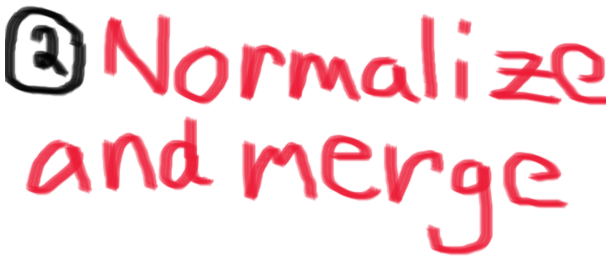 ② Normalize
and merge